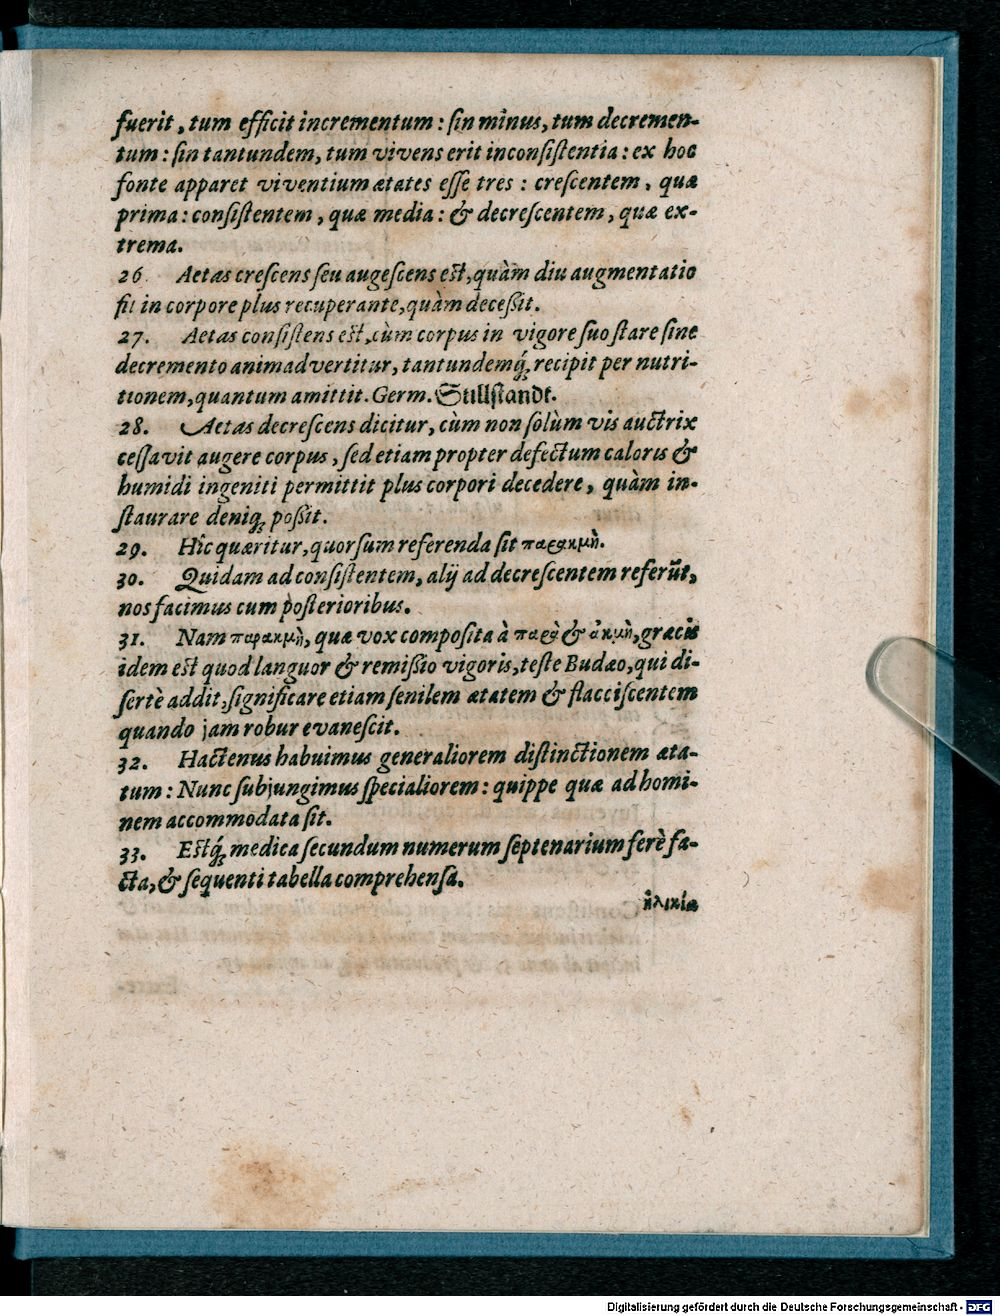 fuerit, tum efficit incrementum : ſin minus, tum decremen-
tum : ſin tantundem, tum vivens erit inconſiſtentia : ex hoc
fonte apparet viventium ætates eſſe tres : creſcentem, quæ
prima : conſiſtentem, quæ media : & decreſcentem, quæ ex-
trema.
26. Aetas creſcens ſeu augeſcens eſt, quàm diu augmentatio
fit in corpore plus recuperante, quàm deceßit.
27. Aetas conſiſtens eſt, cùm corpus in vigore ſuo ſtare ſine
decremento animadvertitur, tantundemq́; recipit per nutri-
tionem, quantum amittit. Germ. Stillſtandt.
28. Aetas decreſcens dicitur, cùm non ſolùm vis auctrix
ceſſavit augere corpus, ſed etiam propter defectum caloris &
humidi ingeniti permittit plus corpori decedere, quàm in-
ſtaurare deniq; poßit.
29. Hîc quæritur, quorſum referenda ſit παρακμὴ.
30. Quidam ad conſiſtentem, alij ad decreſcentem referūt,
nos facimus cum poſterioribus.
31. Nam παρακμὴ, quæ vox compoſita à παρὰ & ἀκμὴ, græcis
idem eſt quod languor & remißio vigoris, teſte Budæo, qui di-
ſertè addit, ſignificare etiam ſenilem ætatem & flacciſcentem
quando jam robur evaneſcit.
32. Hactenus habuimus generaliorem diſtinctionem æta-
tum : Nunc ſubjungimus ſpecialiorem : quippe quæ ad homi-
nem accommodata ſit.
33. Eſtq́; medica ſecundum numerum ſeptenarium ferè fa-
cta, & ſequenti tabella comprehenſa.
ἡλικία
Digitalisierung gefördert durch die Deutsche Forschungsgemeinschaft - DFG